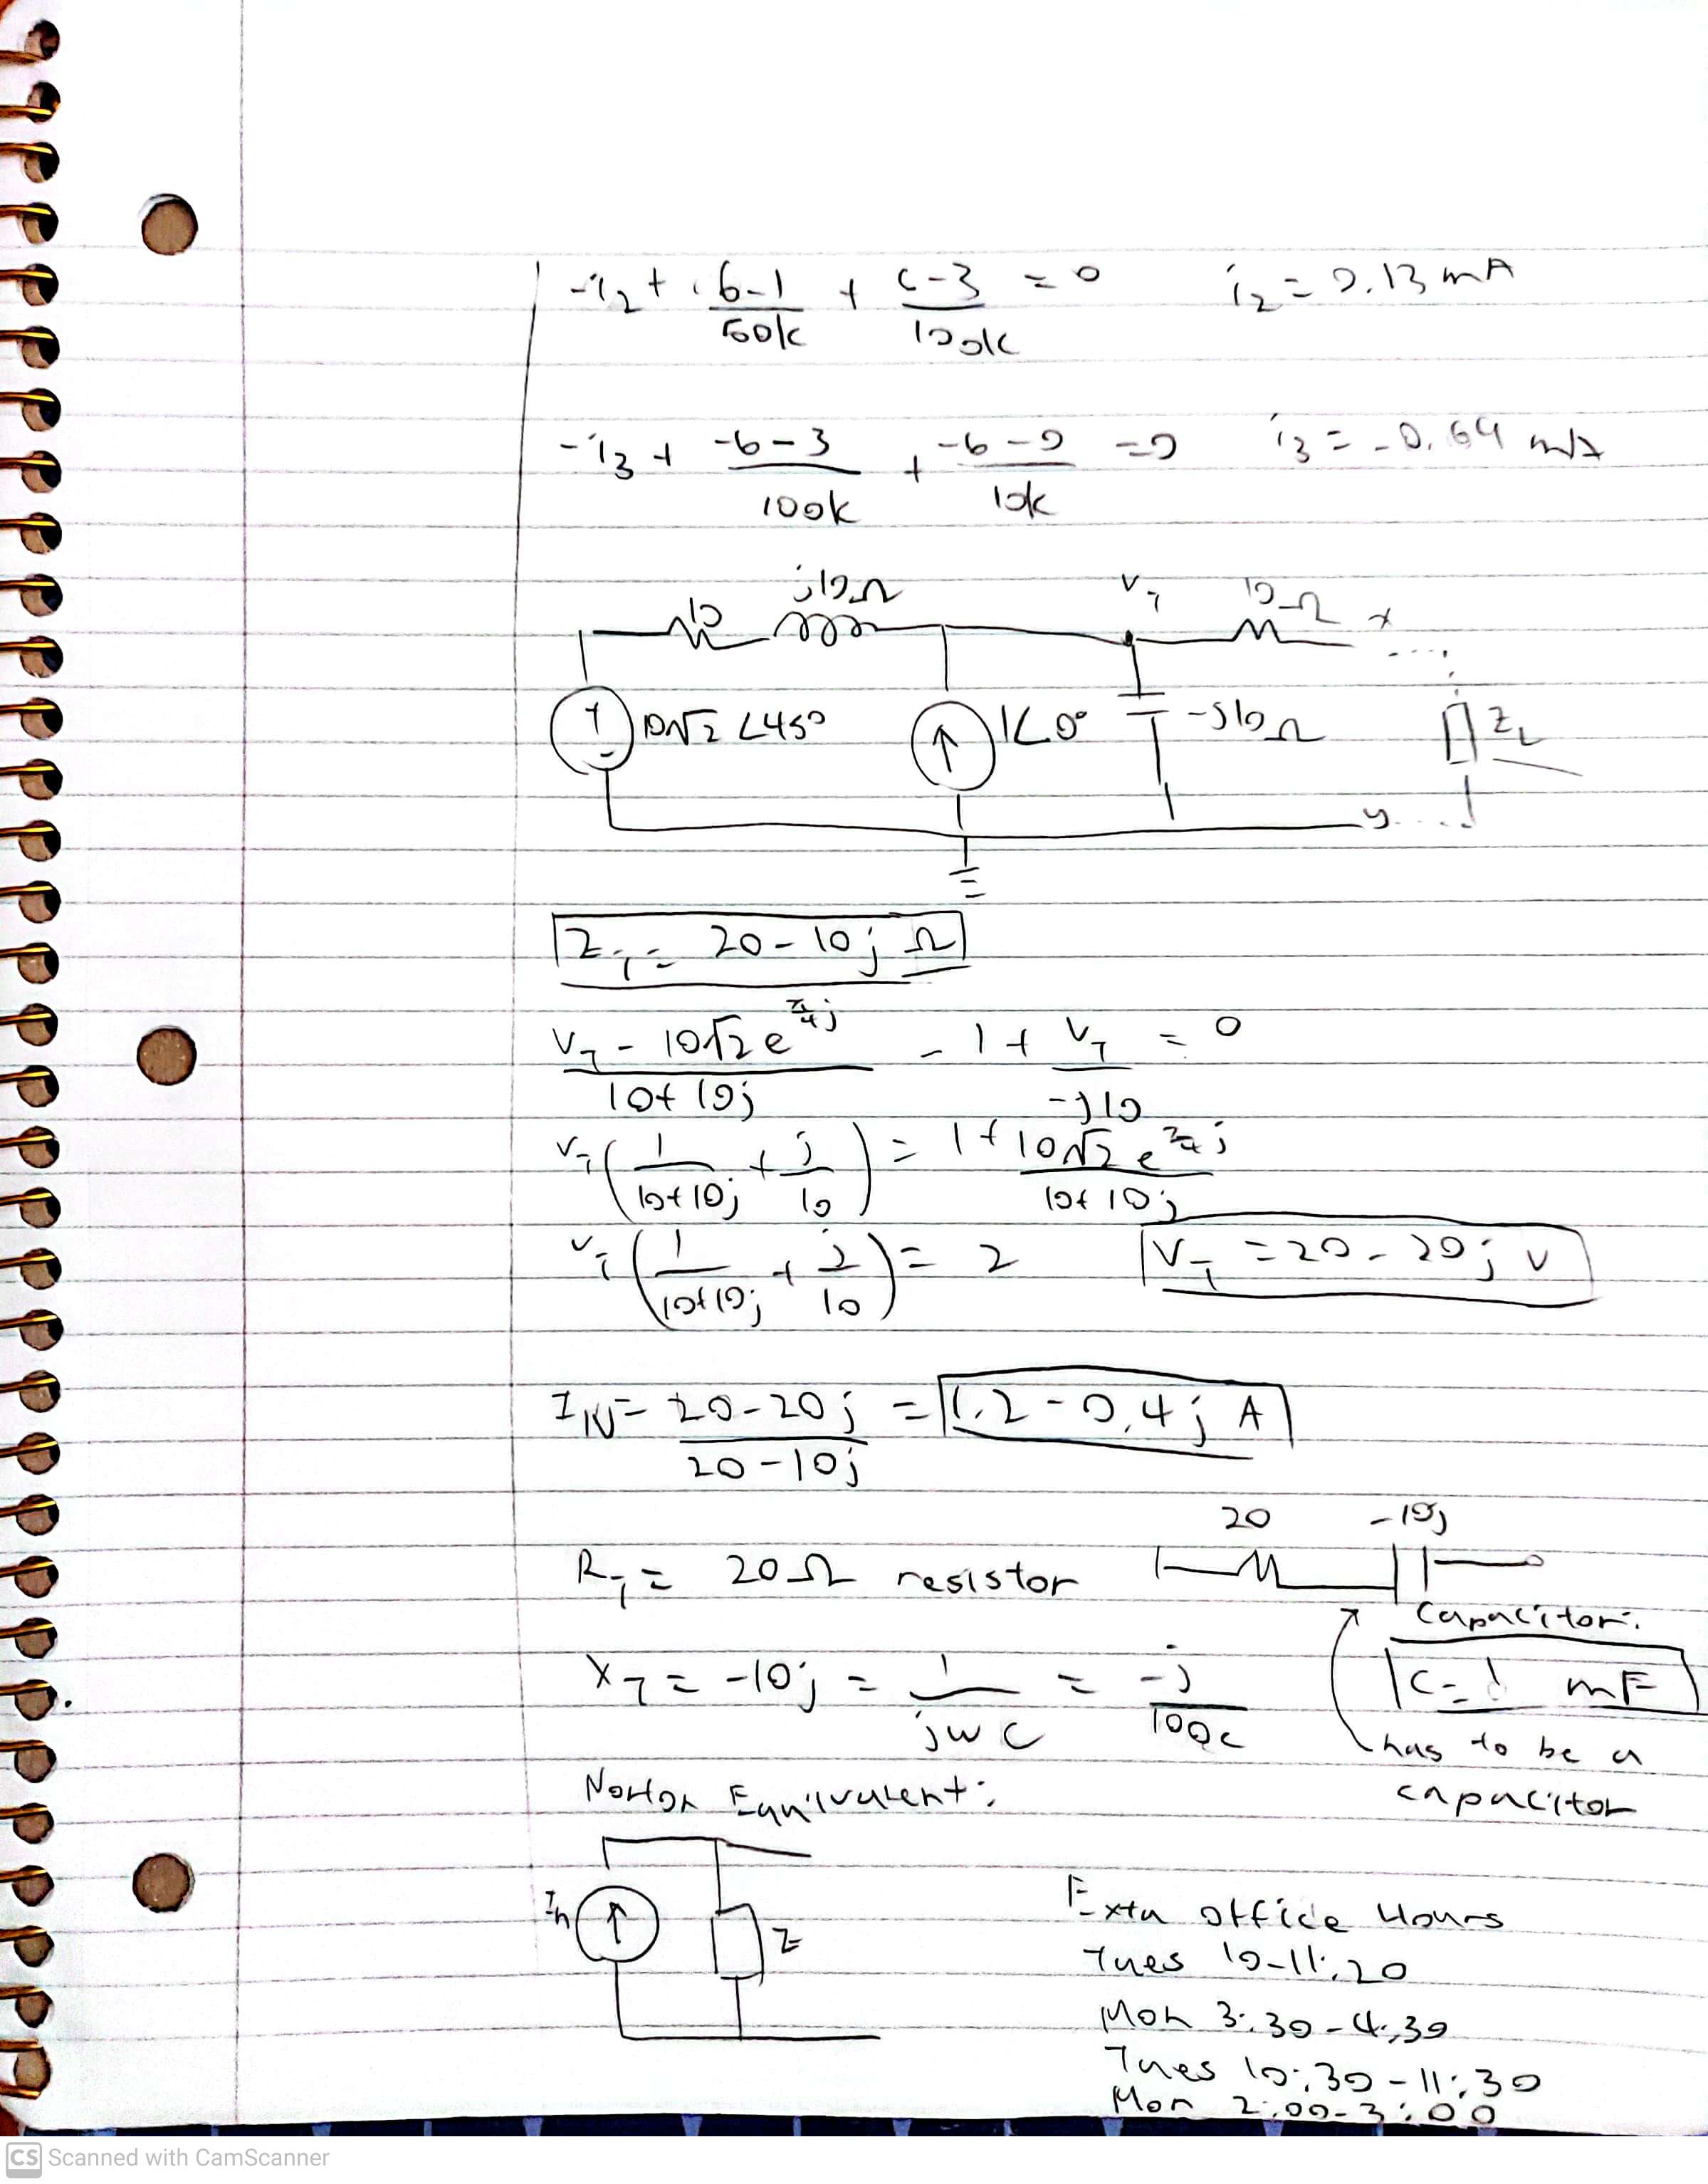 -i₂ + (6-1)/50k + (6-3)/100k = 0    i₂ = 0.13 mA
-i₃ + (-6-3)/100k + (-6-0)/10k = 0    i₃ = -0.69 mA
10    j10Ω    V_T    10Ω    x
+ - 10√2 ∠45°    1∠0°    -j10Ω    Z_L
y
Z_T = 20-10j Ω
(V_T - 10√2 e^(π/4 j))/(10+10j) - 1 + V_T/(-j10) = 0
V_T (1/(10+10j) + j/10) = 1 + (10√2 e^(π/4 j))/(10+10j)
V_T (1/(10+10j) + j/10) = 2    V_T = 20-20j V
I_N = (20-20j)/(20-10j) = 1.2-0.4j A
20    -10j
R_T = 20Ω resistor
Capacitor:
X_T = -10j = 1/(jωC) = -j/(100C)    C = 1 mF
has to be a
capacitor
Norton Equivalent:
I_n    Z
Exta office Hours
Tues 10-11:20
Mon 3:30-4:30
Tues 10:30-11:30
Mon 2:00-3:00
CS Scanned with CamScanner